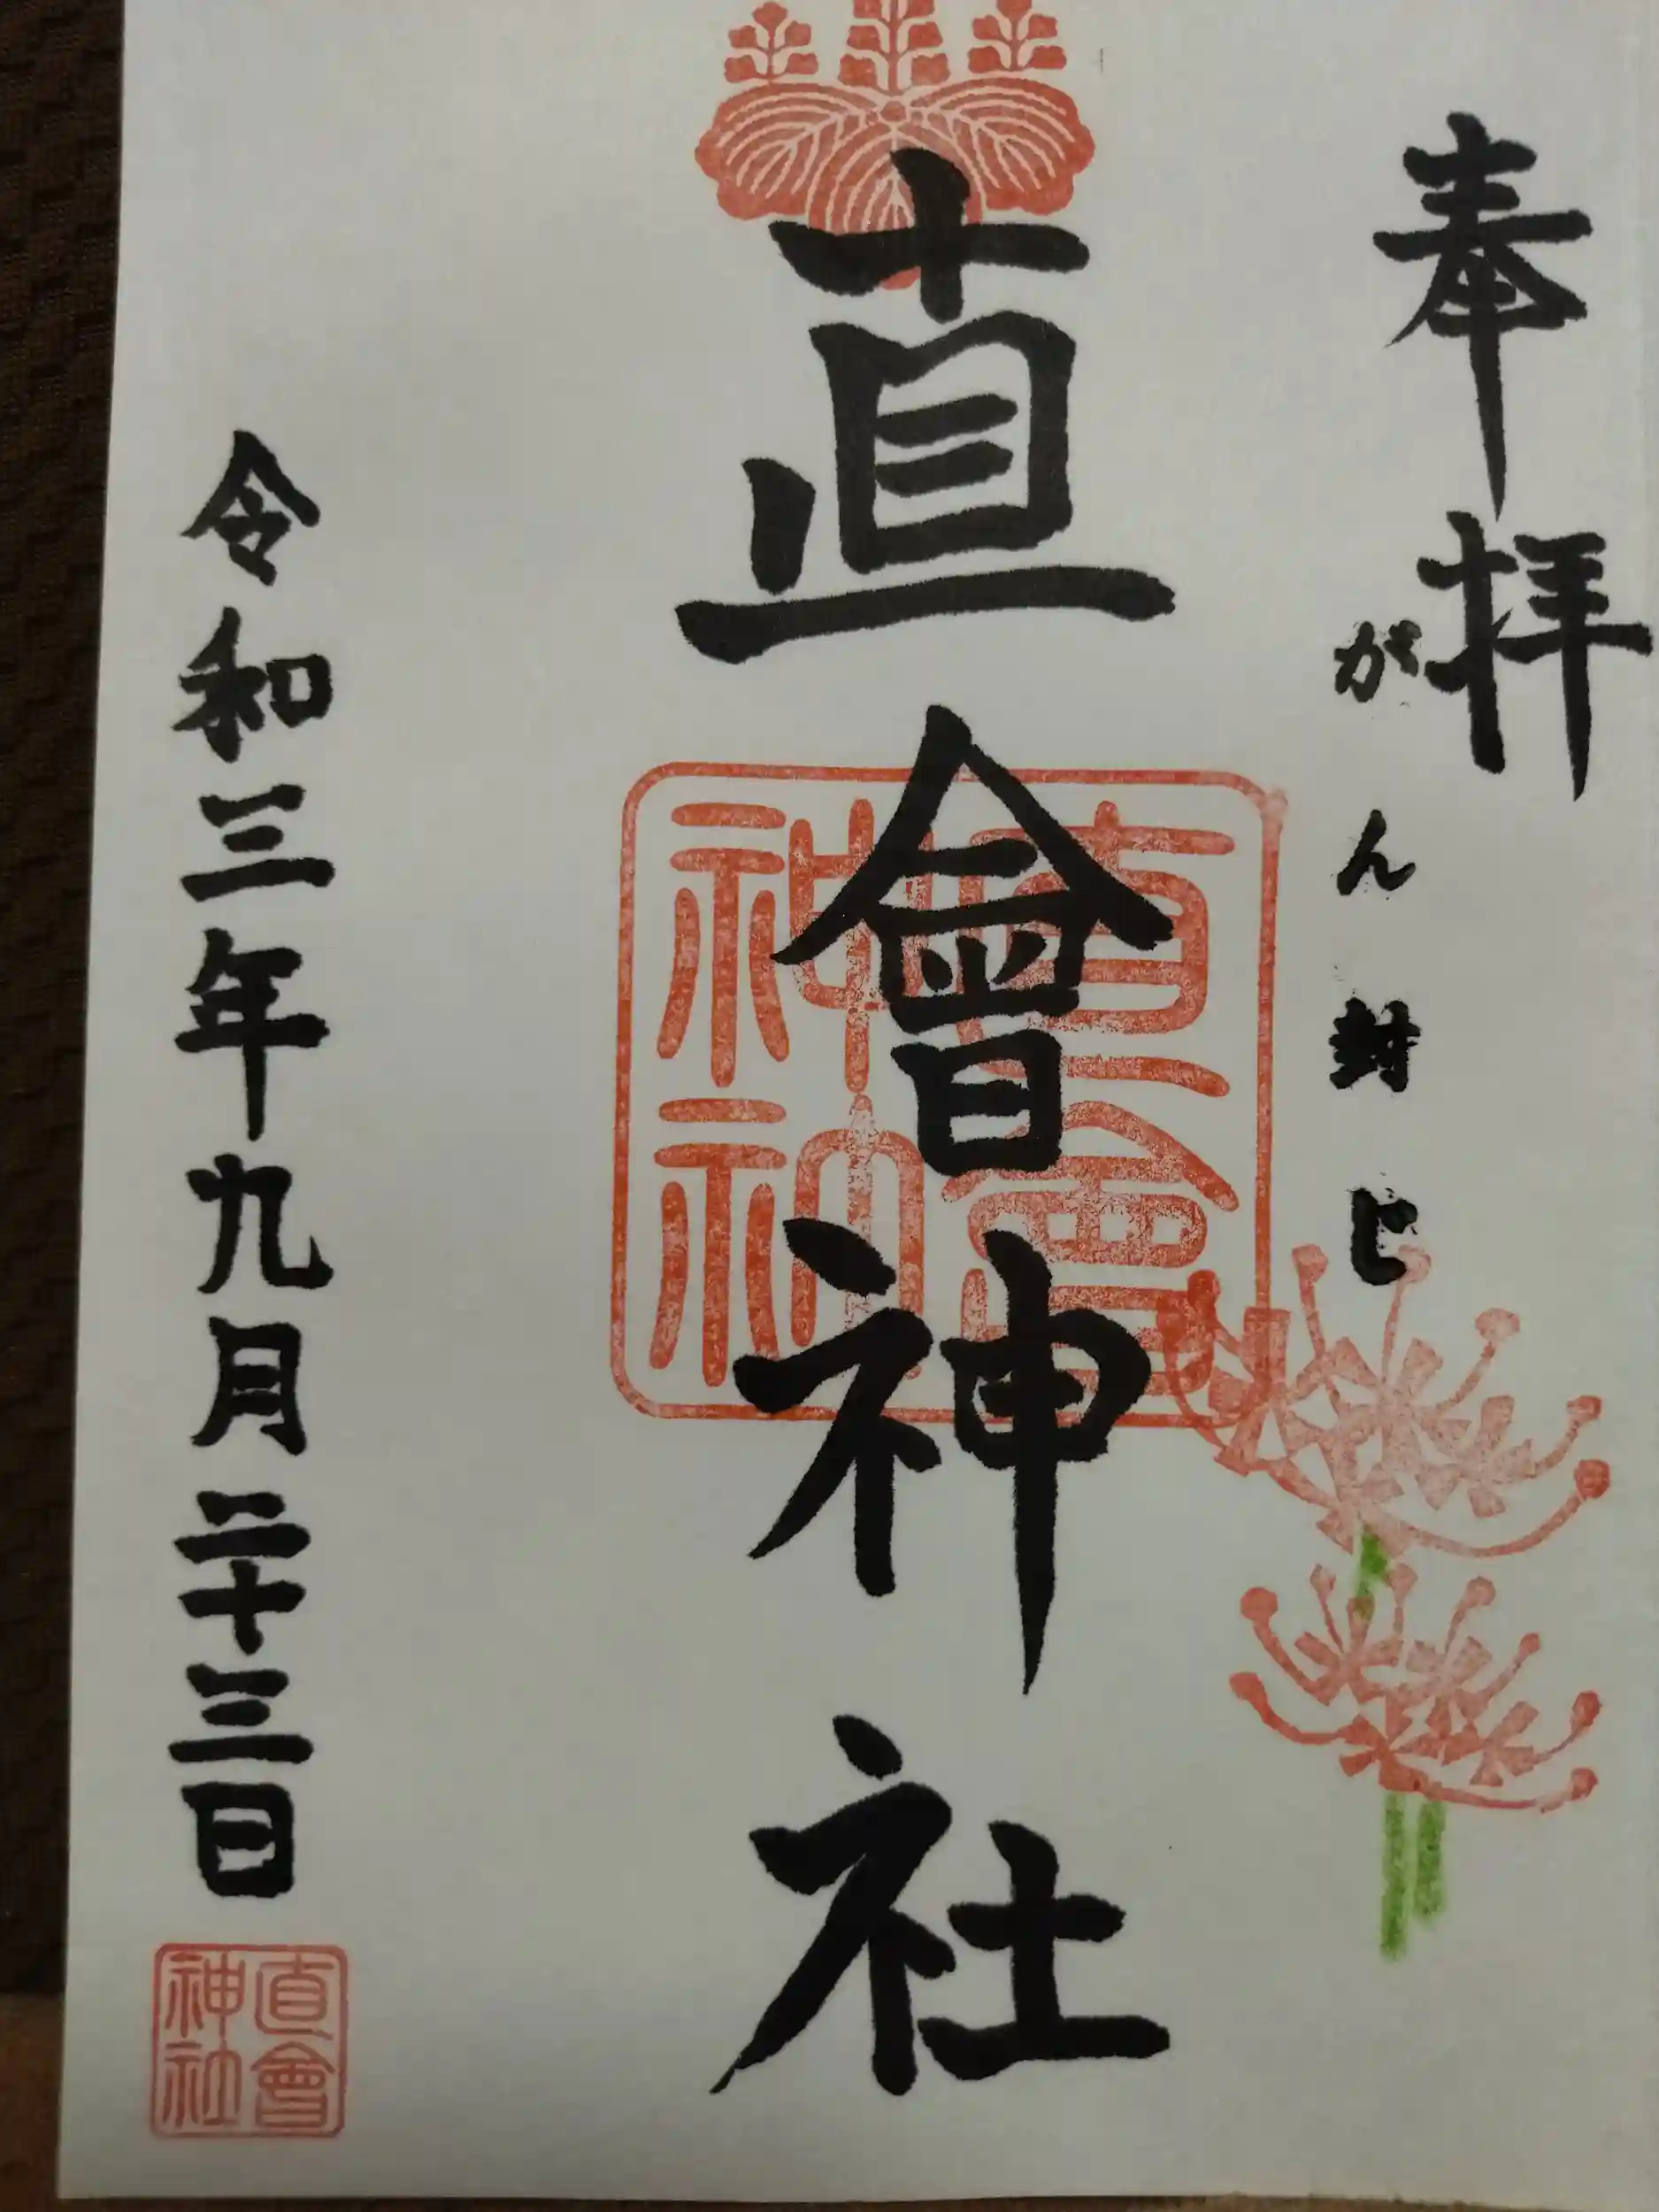 奉拝
がん封じ
直會神社
直會神社
令和三年九月二十三日
直會神社